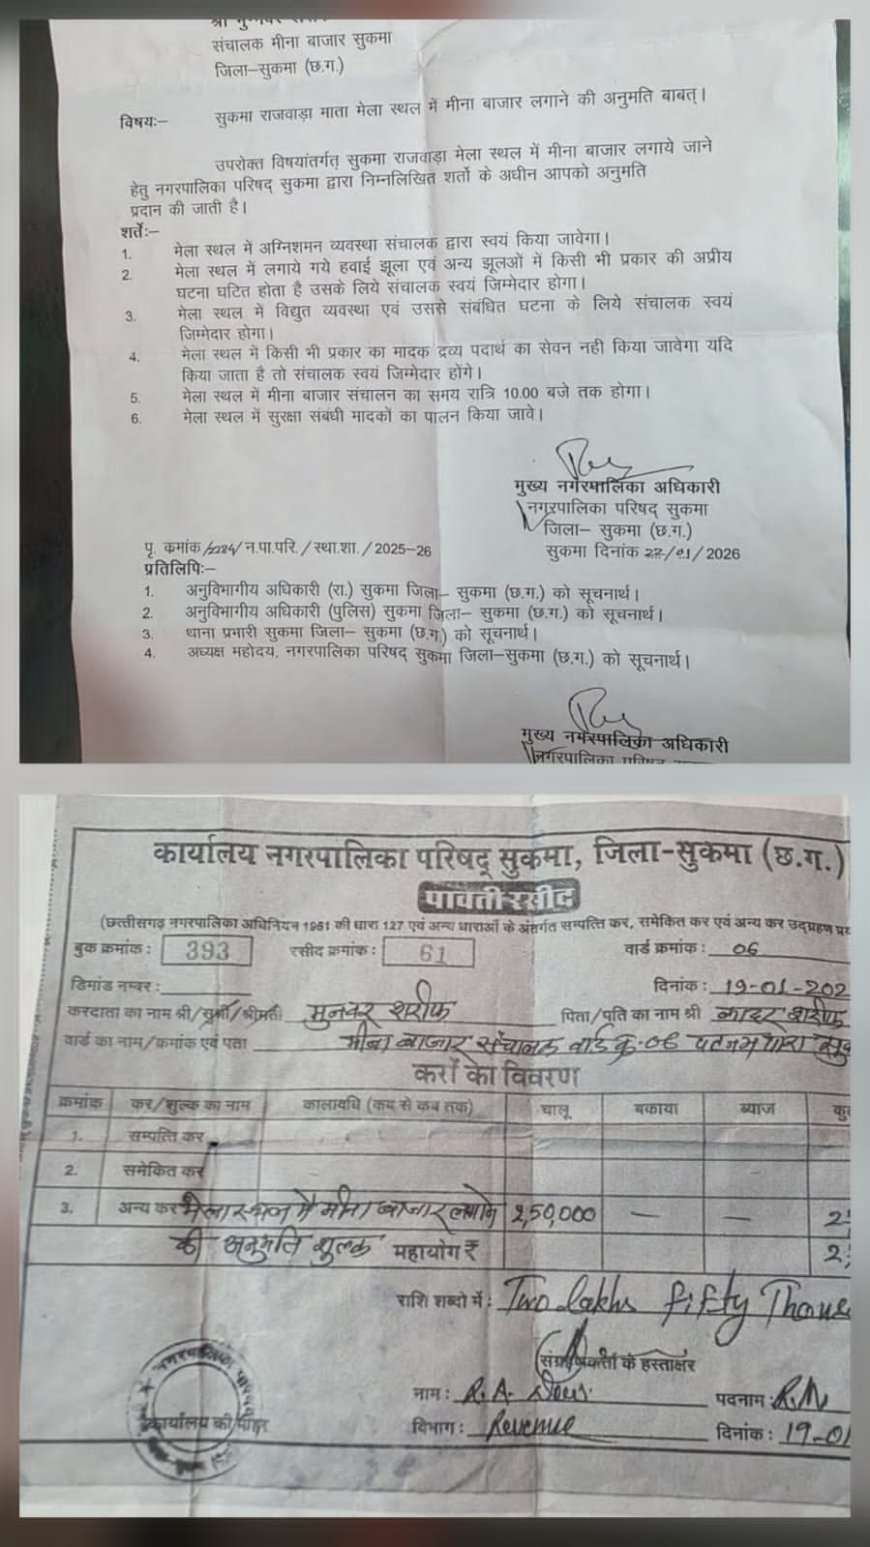 संचालक मीना बाजार सुकमा
जिला–सुकमा (छ.ग.)
विषयः– सुकमा राजवाड़ा माता मेला स्थल में मीना बाजार लगाने की अनुमति बाबत्।
उपरोक्त विषयांतर्गत् सुकमा राजवाड़ा मेला स्थल में मीना बाजार लगाये जाने
हेतु नगरपालिका परिषद् सुकमा द्वारा निम्नलिखित शर्तो के अधीन आपको अनुमति
प्रदान की जाती है।
शर्तेः–
1. मेला स्थल में अग्निशमन व्यवस्था संचालक द्वारा स्वयं किया जावेगा।
2. मेला स्थल में लगाये गये हवाई झूला एवं अन्य झूलओं में किसी भी प्रकार की अप्रीय
घटना घटित होता है उसके लिये संचालक स्वयं जिम्मेदार होगा।
3. मेला स्थल में विद्युत व्यवस्था एवं उससे संबंधित घटना के लिये संचालक स्वयं
जिम्मेदार होगा।
4. मेला स्थल में किसी भी प्रकार का मादक द्रव्य पदार्थ का सेवन नही किया जावेगा यदि
किया जाता है तो संचालक स्वयं जिम्मेदार होंगे।
5. मेला स्थल में मीना बाजार संचालन का समय रात्रि 10.00 बजे तक होगा।
6. मेला स्थल में सुरक्षा संबंधी मादकों का पालन किया जावे।
मुख्य नगरपालिका अधिकारी
नगरपालिका परिषद् सुकमा
जिला– सुकमा (छ.ग.)
पृ. क्रमांक / न.पा.परि. / स्था.शा. / 2025–26 सुकमा दिनांक /01/2026
प्रतिलिपिः–
1. अनुविभागीय अधिकारी (रा.) सुकमा जिला– सुकमा (छ.ग.) को सूचनार्थ।
2. अनुविभागीय अधिकारी (पुलिस) सुकमा जिला– सुकमा (छ.ग.) को सूचनार्थ।
3. थाना प्रभारी सुकमा जिला– सुकमा (छ.ग.) को सूचनार्थ।
4. अध्यक्ष महोदय, नगरपालिका परिषद् सुकमा जिला–सुकमा (छ.ग.) को सूचनार्थ।
मुख्य नगरपालिका अधिकारी
नगरपालिका परिषद
कार्यालय नगरपालिका परिषद् सुकमा, जिला-सुकमा (छ.ग.)
पावती रसीद
(छत्तीसगढ़ नगरपालिका अधिनियन 1961 की धारा 127 एवं अन्य धाराओं के अंतर्गत सम्पत्ति कर, समेकित कर एवं अन्य कर उद्ग्रहण
बुक क्रमांक : 393 रसीद क्रमांक : 61 वार्ड क्रमांक : 06
डिमांड नम्बर : दिनांक : 19-01-202
करदाता का नाम श्री/सुश्री/श्रीमती मुनवर शरीफ पिता/पति का नाम श्री कादर शरीफ
वार्ड का नाम/क्रमांक एवं पता मीना बाजार संचालक वार्ड क्र.-06
करों का विवरण
क्रमांक कर/शुल्क का नाम कालावधि (कब से कब तक) चालू बकाया ब्याज
1. सम्पत्ति कर
2. समेकित कर
3. अन्य कर मेला स्थल में मीना बाजार लगाने 2,50,000 — —
की अनुमति शुल्क महायोग ₹
राशि शब्दो में : Two lakhs fifty Thous
संग्रहणकर्ता के हस्ताक्षर
नाम : R.A. पदनाम :
विभाग : Revenue दिनांक : 19-01
कार्यालय की मोहर